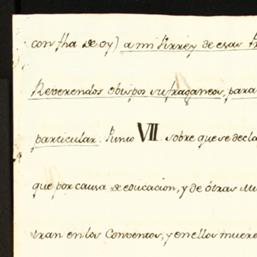 con fha de oy) a mi Virrey de esas
Reverendos obispos sufraganeos, para
particular. Punto VII. sobre que se decla
que por causa de educacion, y de otras
tran en los Conventos, y en ellos muere